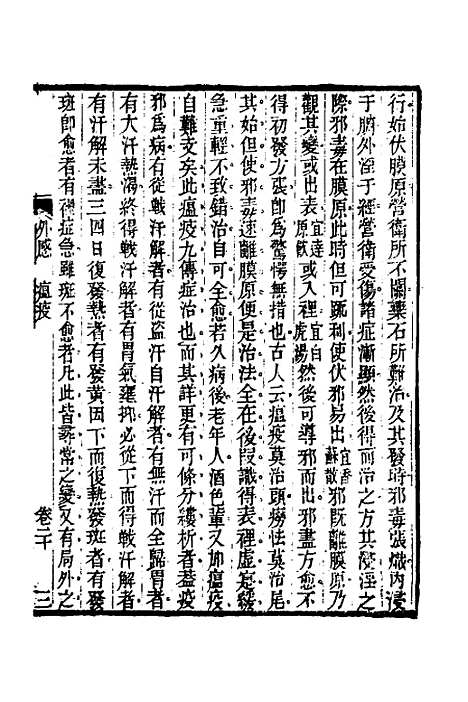 行始伏膜原營衛所不關藥石所難治及其發時邪毒張熾內浸
于腑外淫于經營衛受傷諸症漸顯然後得而治之方其浸淫之
際邪毒在膜原此時但可疏利使伏邪易出宜香蘇散邪既離膜原乃
觀其變或出表宜達原飲或入裡宜白虎湯然後可導邪而出邪盡方愈不
得初發方張即爲驚愕無措也古人云瘟疫莫治頭癆怯莫治尾
其始但使邪毒速離膜原便是治法全在後段識得表裡虛實緩
急重輕不致錯治自可全愈若久病後老年人酒色輩又加瘟疫
自難支矣此瘟疫九傳症治也而其詳更有可條分縷析者蓋疫
邪爲病有從戰汗解者有從盜汗自汗解者有無汗而全歸胃者
有大汗熱渴終得戰汗解者有胃氣壅抑必從下而得戰汗解者
有汗解未盡三四日復發熱者有發黃因下而復熱發斑者有發
斑即愈者有裡症急雖斑不愈者凡此皆尋常之變又有局外之
外感 瘟疫 卷二十 三